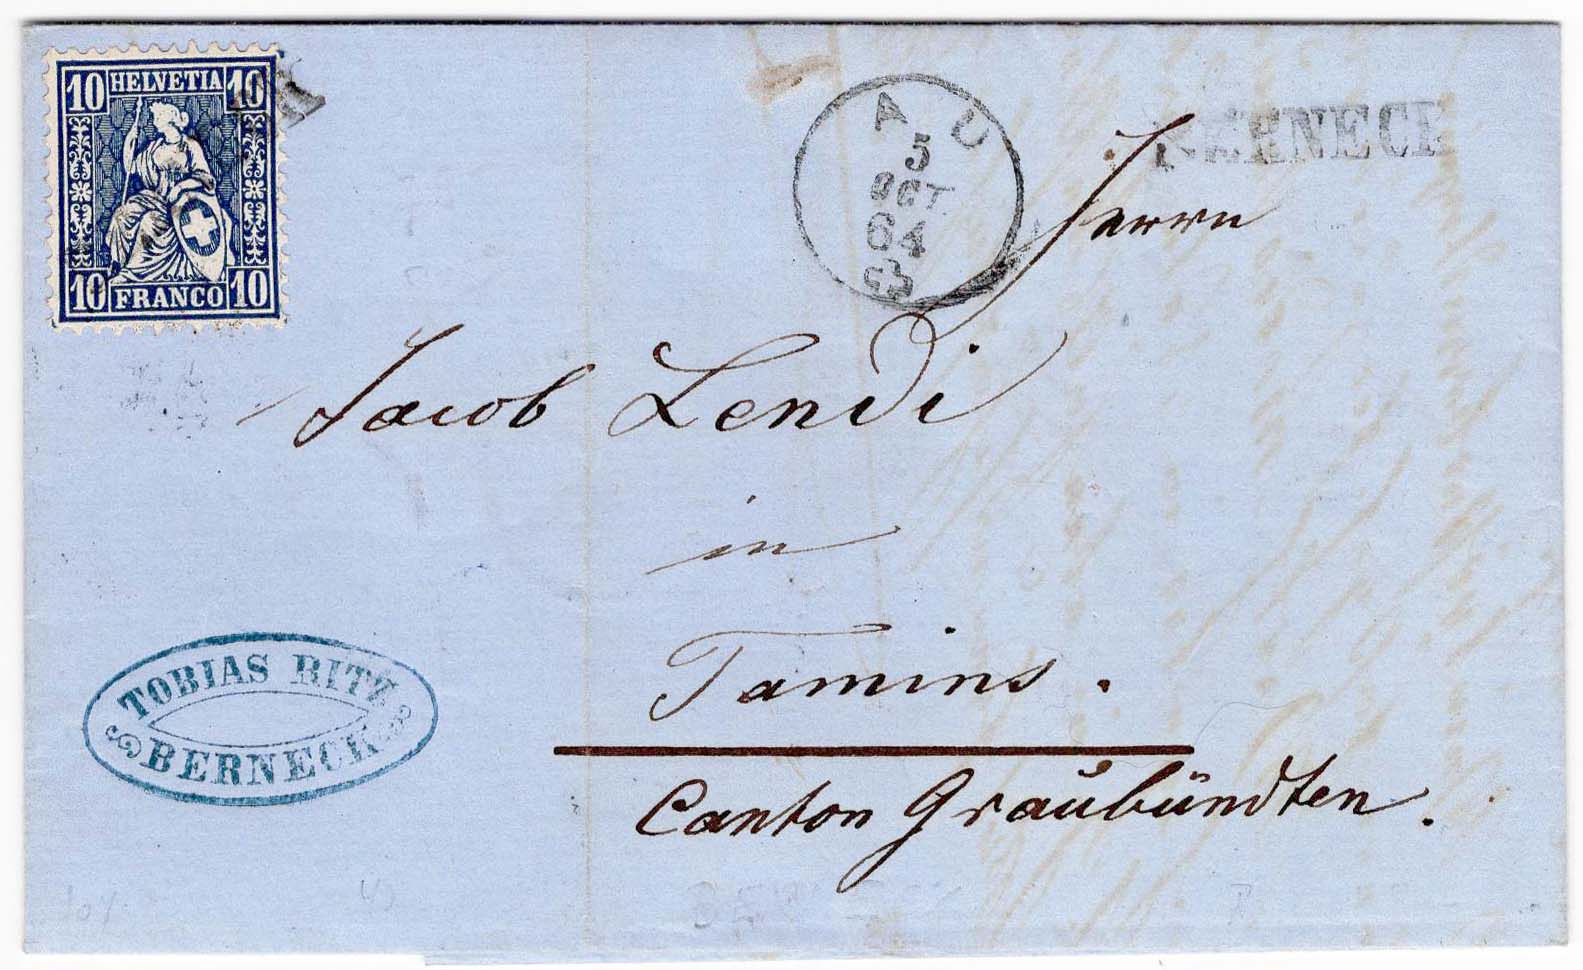 10 HELVETIA 10
10 FRANCO 10
AU
5
OCT
64
BERNECK
Herrn
Jacob Lendi
in
Tamins.
Canton Graubündten.
TOBIAS RITZ
BERNECK